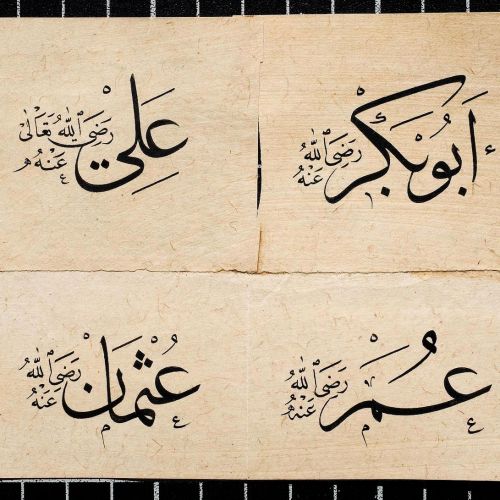 أَبُو بَكْرٍ رَضِيَ ٱللّٰهُ عَنْهُ
عَلِيّ رَضِيَ ٱللّٰهُ تَعَالٰى عَنْهُ
عُمَرْ رَضِيَ ٱللّٰهُ عَنْهُ
عُثْمَانْ رَضِيَ ٱللّٰهُ عَنْهُ